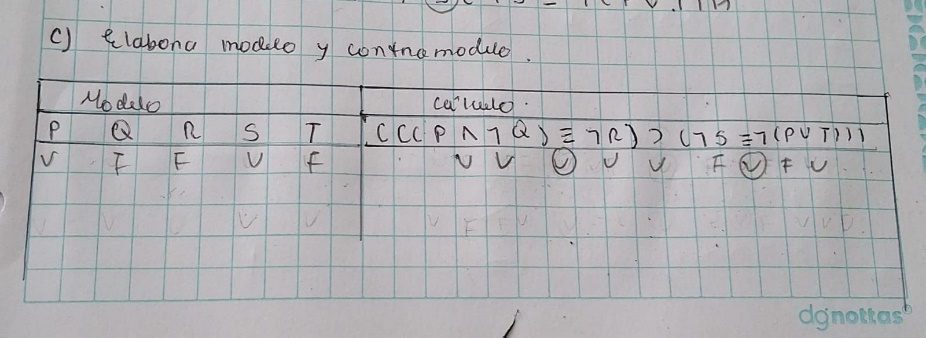 c) Elabora modelo y contramodelo.
Modelo Cálculo.
P Q R S T (((P ∧ ¬ Q) ≡ ¬ R) ⊃ (¬ S ≡ ¬ (P ∨ T)))
V F F V F V V V V V F V F V
dgnottas